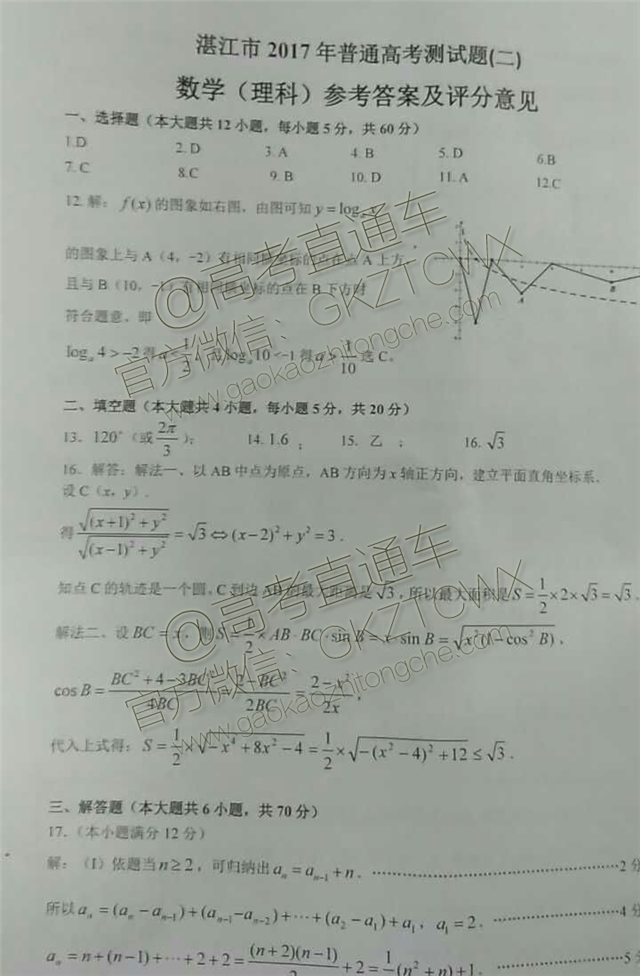 湛江市 2017 年普通高考测试题(二)
数学（理科）参考答案及评分意见
一、选择题（本大题共 12 小题，每小题 5 分，共 60 分）
1.D 2. D 3. A 4. B 5. D 6.B
7. C 8.C 9. B 10. D 11. A 12.C
12. 解： f(x) 的图象如右图，由图可知 y = log
的图象上与 A（4，-2）有相同横坐标的点在点 A 上方，
且与 B（10，-1）有相同横坐标的点在 B 下方时
符合题意，即
logₐ 4 > -2 得 a < 1/2，由 logₐ 10 < -1 得 a > 1/10 选 C。
二、填空题（本大题共 4 小题，每小题 5 分，共 20 分）
13. 120°（或 2π/3）； 14. 1.6 ； 15. 乙 ； 16. √3
16. 解答：解法一、以 AB 中点为原点，AB 方向为 x 轴正方向，建立平面直角坐标系，
设 C（x，y）.
得 √((x+1)²+y²)/√((x-1)²+y²) = √3 ⇔ (x-2)²+y² = 3 .
知点 C 的轨迹是一个圆，C 到边 AB 的最大距离是 √3，所以最大面积是 S = 1/2 × 2 × √3 = √3 .
解法二、设 BC = x，则 S = 1/2 × AB · BC · sin B = x · sin B = √(x²(1-cos² B)) ，
cos B = (BC²+4-3BC²)/4BC = (2-BC²)/2BC = (2-x²)/2x ，
代入上式得：S = 1/2 × √(-x⁴+8x²-4) = 1/2 × √(-(x²-4)²+12) ≤ √3 .
三、解答题（本大题共 6 小题，共 70 分）
17.（本小题满分 12 分）
解：（I）依题当 n ≥ 2，可归纳出 aₙ = aₙ₋₁ + n . ……………… 2 分
所以 aₙ = (aₙ - aₙ₋₁) + (aₙ₋₁ - aₙ₋₂) + ··· + (a₂ - a₁) + a₁ ，a₁ = 2 . ……… 4 分
aₙ = n + (n-1) + ··· + 2 + 2 = (n+2)(n-1)/2 + 2 = 1/2(n²+n)+1 . ……… 5 分
@高考直通车
官方微信：GKZTCWX
www.gaokaozhitongche.com
@高考直通车
官方微信：GKZTCWX
www.gaokaozhitongche.com